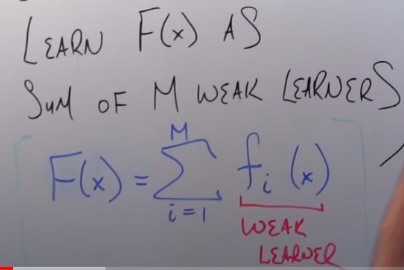 LEARN F(x) AS
SUM OF M WEAK LEARNERS
F(x) = \sum_{i=1}^{M} f_i (x)
WEAK
LEARNER